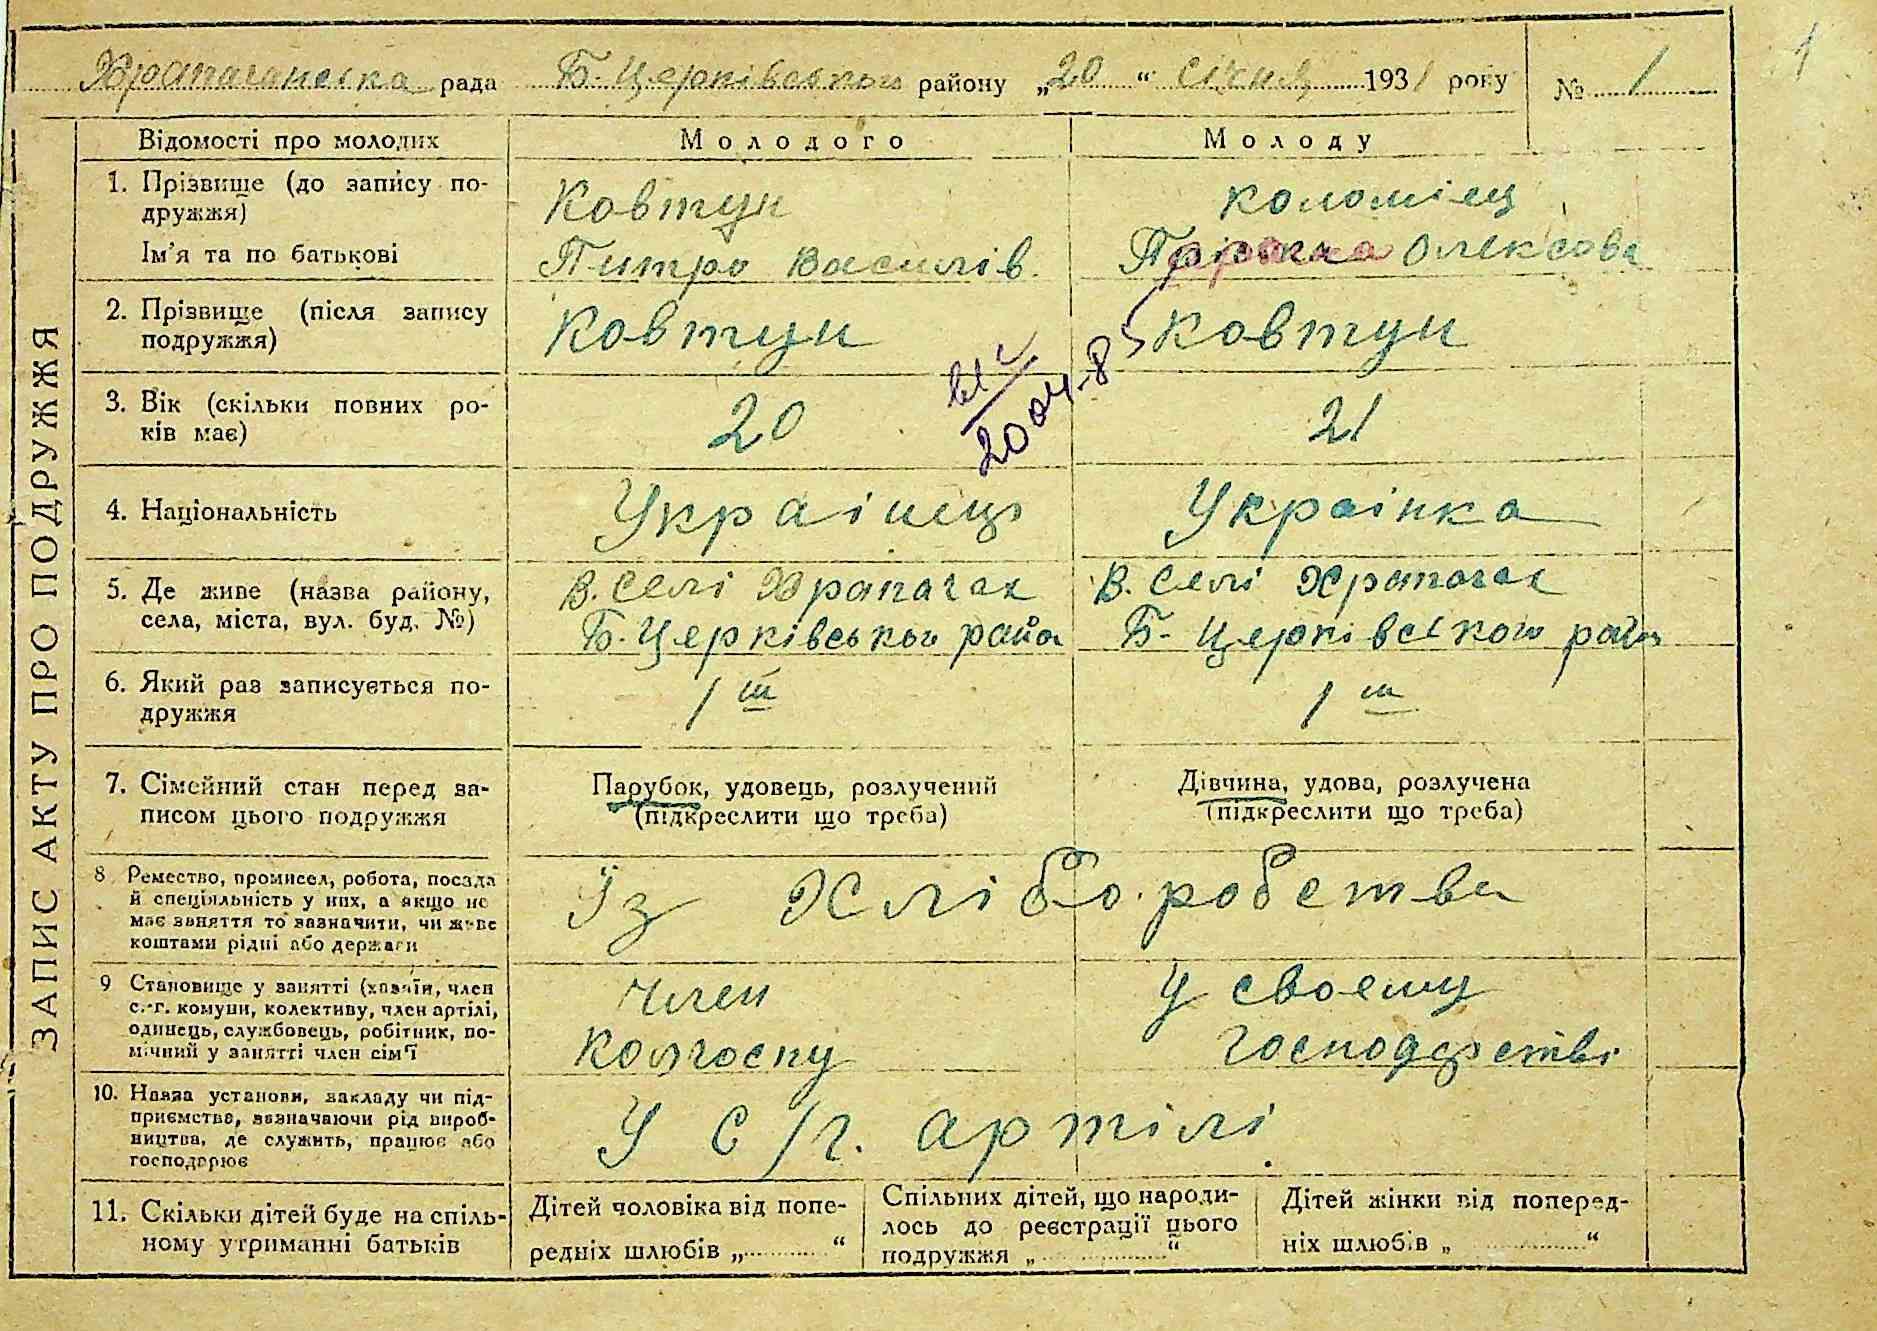 1
Храпачанська рада Б-Церківського району „20“ січня 1931 року № 1
ЗАПИС АКТУ ПРО ПОДРУЖЖЯ
Відомості про молодих Молодого Молоду
1. Прізвище (до запису по-
дружжя)
Ковтун Коломієц
Ім'я та по батькові Питро Василів. Олексова
2. Прізвище (після запису
подружжя)
Ковтун Ковтун
2004-85
3. Вік (скільки повних ро-
ків має)
20 21
4. Національність Українець Українка
5. Де живе (назва району,
села, міста, вул. буд. №)
В. Селі Храпачах В. Селі Храпачах
Б-Церківського райо Б-Церківського рай
6. Який раз записується по-
дружжя
1й 1й
7. Сімейний стан перед за-
писом цього подружжя
Парубок, удовець, розлучений
(підкреслити що треба)
Дівчина, удова, розлучена
(підкреслити що треба)
8 Ремество, промисел, робота, посада
й спеціяльність у них, а якщо не
має заняття то зазначити, чи живе
коштами рідні або держави
Із Хліборобства
9 Становище у занятті (хазяїн, член
с.-г. комуни, колективу, член артілі,
одинець, службовець, робітник, по-
мічний у занятті член сім'ї
Член
Колгоспу
У своєму
господрстві
10. Назва установи, закладу чи під-
приємства, зазначаючи рід вироб-
ництва, де служить, працює або
господарює
У с/г. артілі.
11. Скільки дітей буде на спіль-
ному утриманні батьків
Дітей чоловіка від попе-
редніх шлюбів „ “
Спільних дітей, що народи-
лось до реєстрації цього
подружжя „ “
Дітей жінки від поперед-
ніх шлюбів „ “